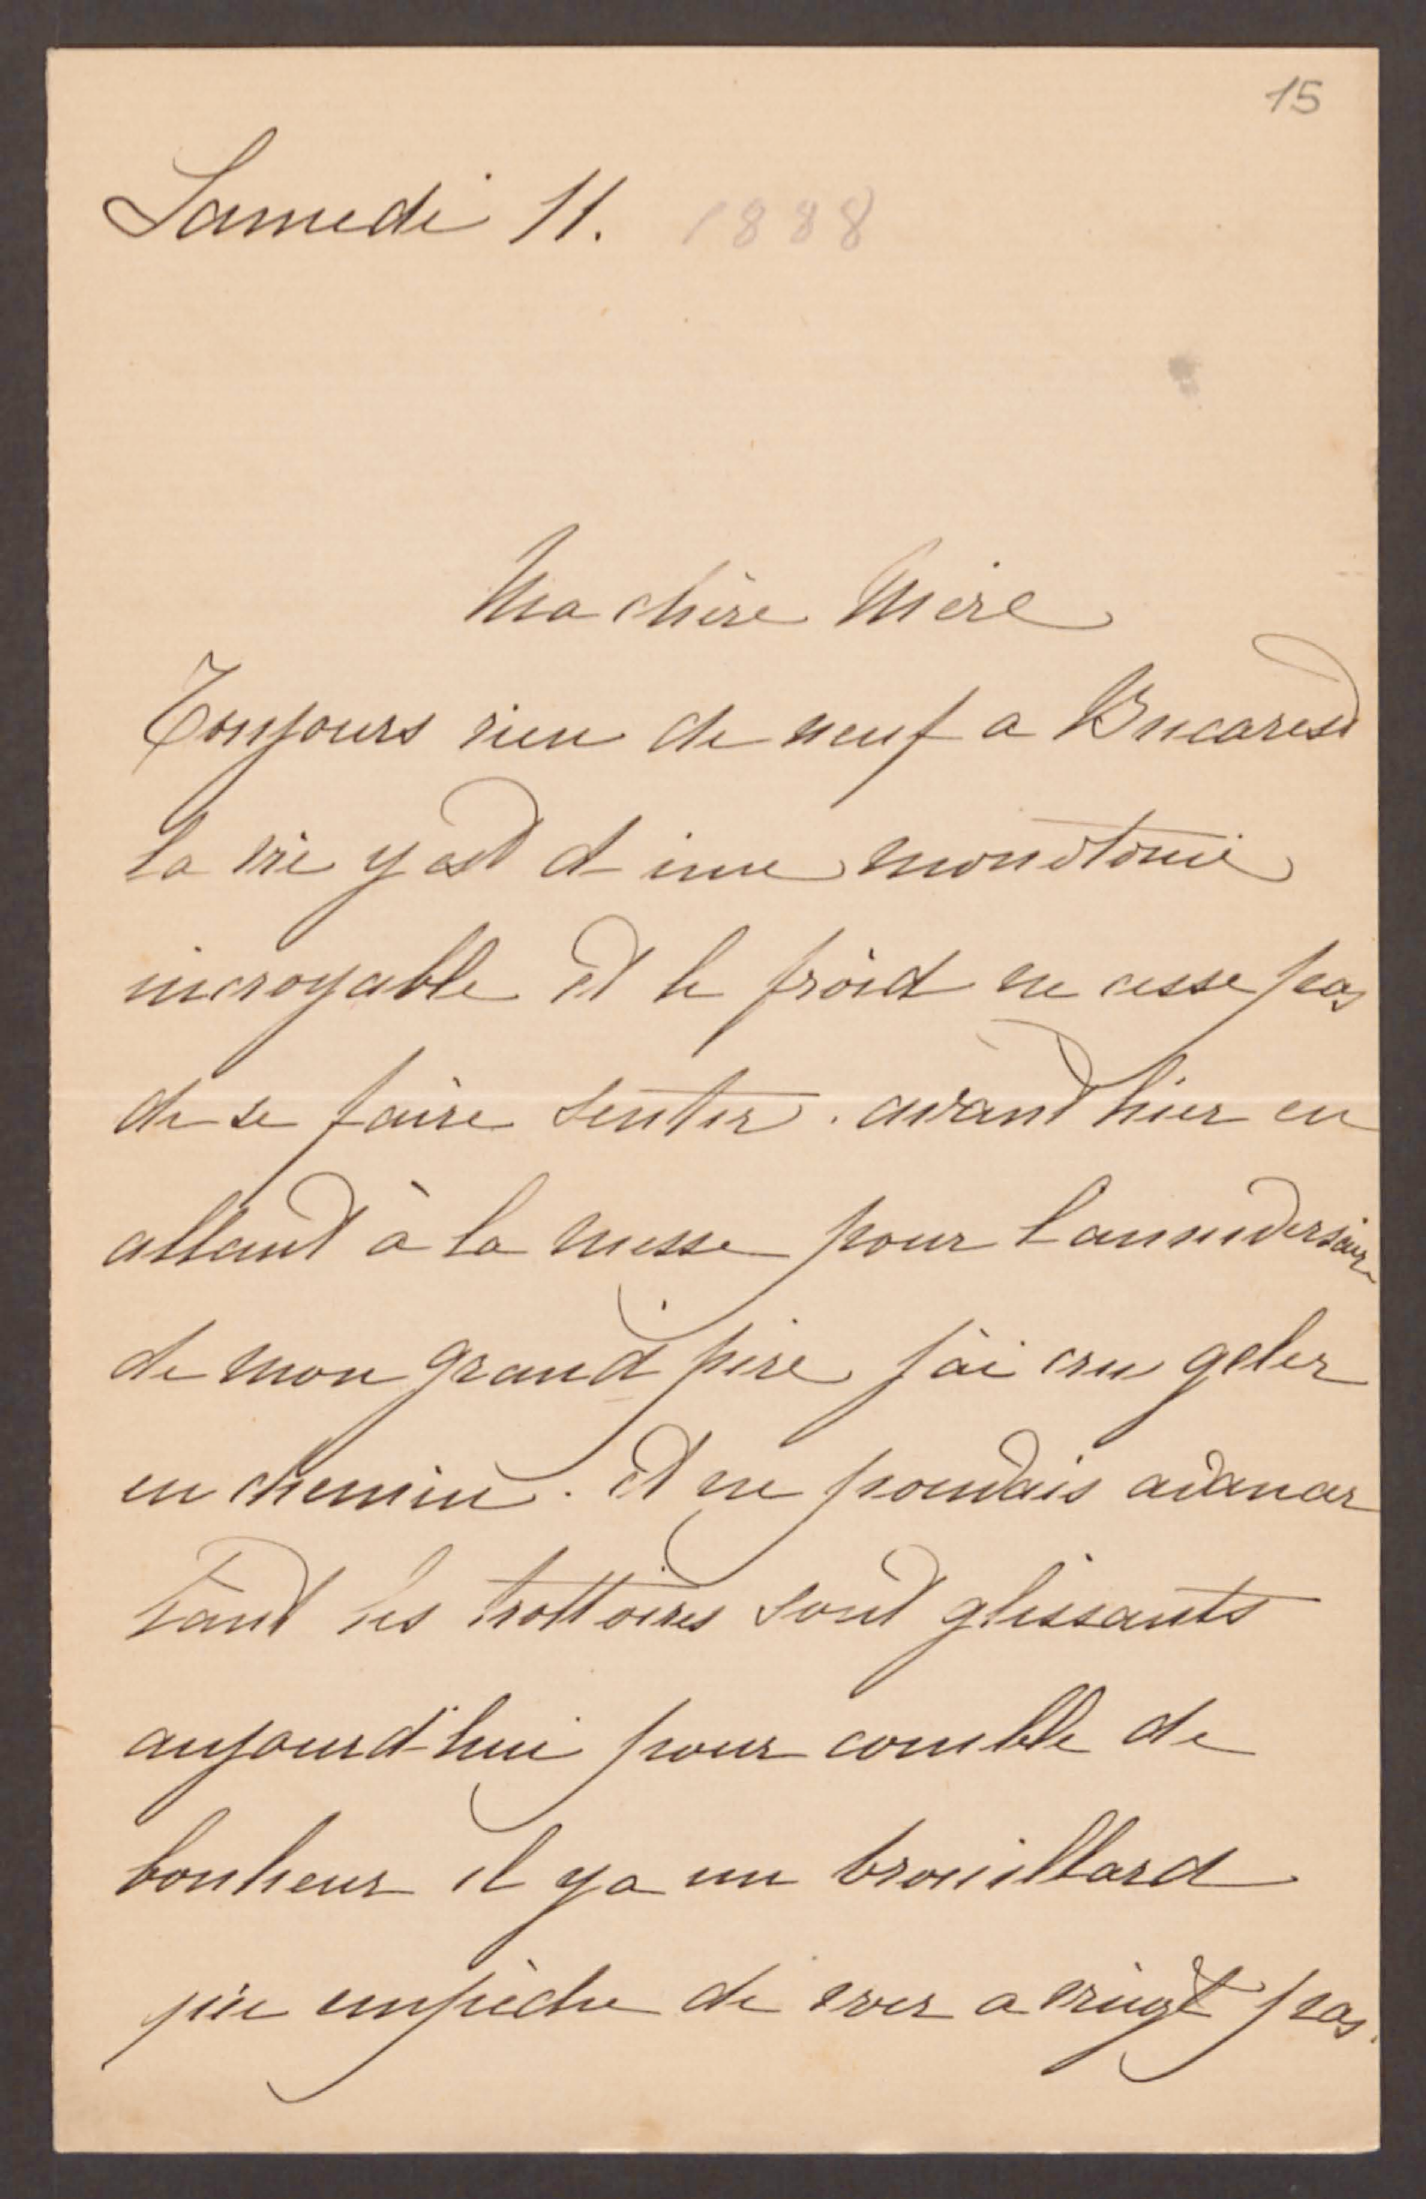 15
Samedi 11. 1888
Ma chère Mère
Toujours rien de neuf a Bucarest
la vie y est d'une monotonie
incroyable et le froid ne cesse pas
de se faire sentir. avant hier en
allant à la messe pour l'anniversaire
de mon grand père j'ai cru geler
en chemin. et ne pouvais avancer
tant les trottoires sont glissants
aujourd'hui pour comble de
bonheur il y a un brouillard
qui empèche de voir a vingt pas.